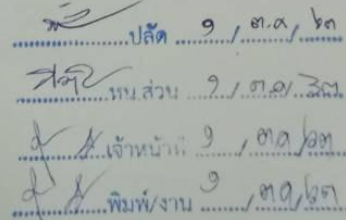 ปลัด ๑ / ต.ค / ๖๓
หน.ส่วน ๑ / ต.ค / ๖๓
เจ้าหน้าที่ ๑ / ต.ค / ๖๓
พิมพ์/งาน ๑ / ต.ค / ๖๓